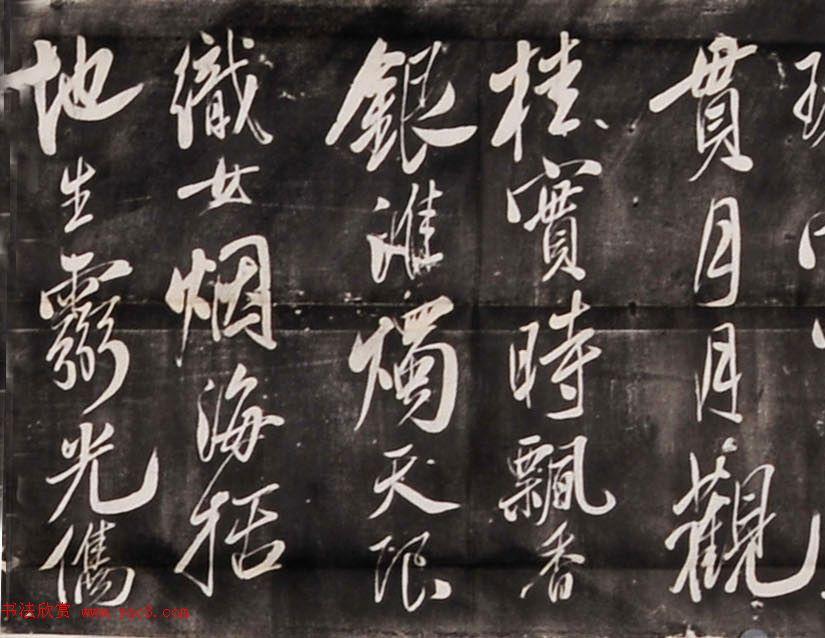 貫月月觀
桂實時飄香
銀淮燭天限
織女烟海括
地生靈光儁
书法欣赏 www.yac8.com